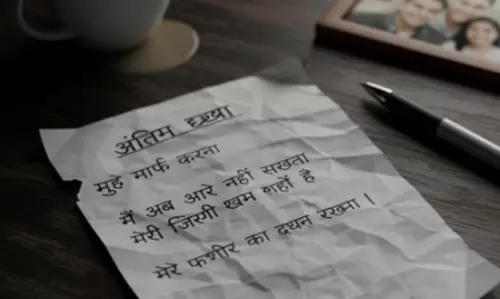 अंतिम इच्छा
मुहे मार्फ करना
मैं अब आरे नहीं सखता
मेरी जिरगी खम शहों है
मेरे फशीर का दथन रखना ।